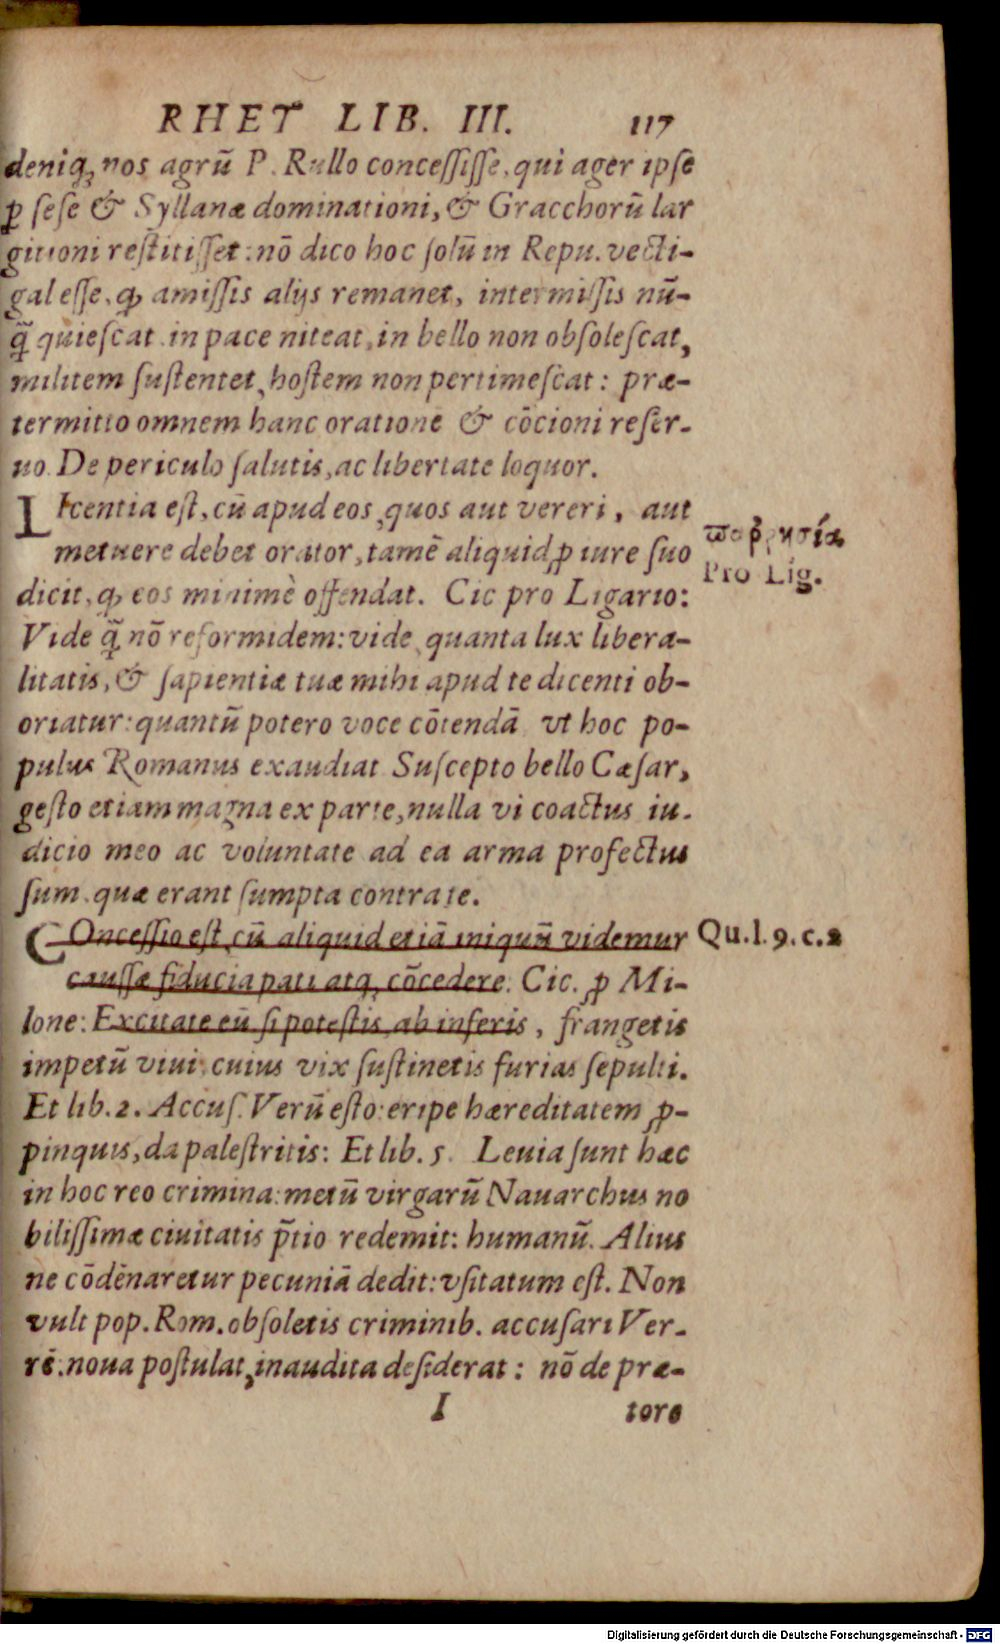 RHET LIB. III. 117
deniq; nos agrū P. Rullo concessisse, qui ager ipse
ꝑ sese & Syllanæ dominationi, & Gracchorū lar
gitioni restitisset: nō dico hoc solū in Repu. vecti-
gal esse, ꝙ amissis alijs remanet, intermissis nū-
q̃ quiescat, in pace niteat, in bello non obsolescat,
militem sustentet, hostem non pertimescat: præ-
termitto omnem hanc orationē & cōcioni reser-
uo. De periculo salutis, ac libertate loquor.
LIcentia est, cū apud eos, quos aut vereri, aut
metuere debet orator, tamē aliquid ꝓ iure suo
dicit, ꝙ eos minimè offendat. Cic pro Ligario:
Vide q̃ nō reformidem: vide, quanta lux libera-
litatis, & sapientiæ tuæ mihi apud te dicenti ob-
oriatur: quantū potero voce cōtendā vt hoc po-
pulus Romanus exaudiat Suscepto bello Cæsar,
gesto etiam magna ex parte, nulla vi coactus iu-
dicio meo ac voluntate ad ea arma profectus
sum, quæ erant sumpta contra te.
COncessio est, cū aliquid etiā iniquū videmur
caussæ fiducia pati atq; cōcedere: Cic. ꝓ Mi-
lone: Excitate eū si potestis, ab inferis, frangetis
impetū viui, cuius vix sustinetis furias sepulti.
Et lib. 2. Accus. Verū esto: eripe hæreditatem ꝓ-
pinquis, da palestritis: Et lib. 5. Leuia sunt hæc
in hoc reo crimina: metū virgarū Nauarchus no
bilissimæ ciuitatis p̄tio redemit: humanū. Alius
ne cōdēnaretur pecuniā dedit: vsitatum est. Non
vult pop. Rom. obsoletis criminib. accusari Ver-
rē: noua postulat, inaudita desiderat: nō de præ-
I tore
παῤῥησία
Pro Lig.
Qu. l. 9. c. 2
Digitalisierung gefördert durch die Deutsche Forschungsgemeinschaft - DFG